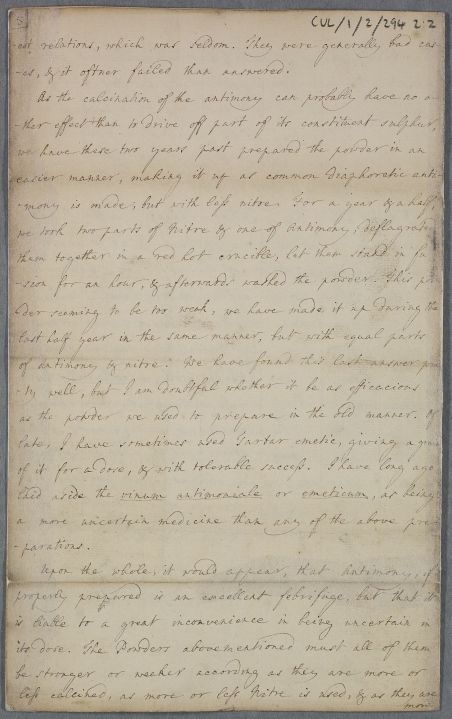 CUL/1/2/294 2:2
-est relations, which was seldom. They were generally bad cas-
-es, & it oftner failed than answered.
As the calcination of the antimony can probably have no o-
-ther effect than to drive off part of its constituent sulphur,
we have these two years past prepared the powder in an
easier manner, making it up as common diaphoretic anti-
-mony is made; but with less nitre. For a year & a half,
we took two parts of Nitre & one of Antimony, deflagrated
them together in a red hot crucible, let them stand in fu-
-sion for an hour, & afterwards washed the powder. This pow-
der seeming to be too weak, we have made it up during the
last half year in the same manner, but with equal parts
of antimony & nitre. We have found this last answer pret-
-ty well, but I am doubtful whether it be as efficacious
as the powder we used to prepare in the old manner. Of
late, I have sometimes used Tartar emetic, giving a grain
of it for a dose, & with tolerable success. I have long ago
laid aside the vinum antimoniale or emeticum, as being
a more uncertain medicine than any of the above pre-
-parations.
Upon the whole, it would appear, that Antimony, if
properly prepared is an excellent febrifuge, but that it
is liable to a great inconvenience in being uncertain in
its dose. The Powders abovementioned must all of them
be stronger or weaker according as they are more or
less calcined, as more or less Nitre is used, & as they are
more